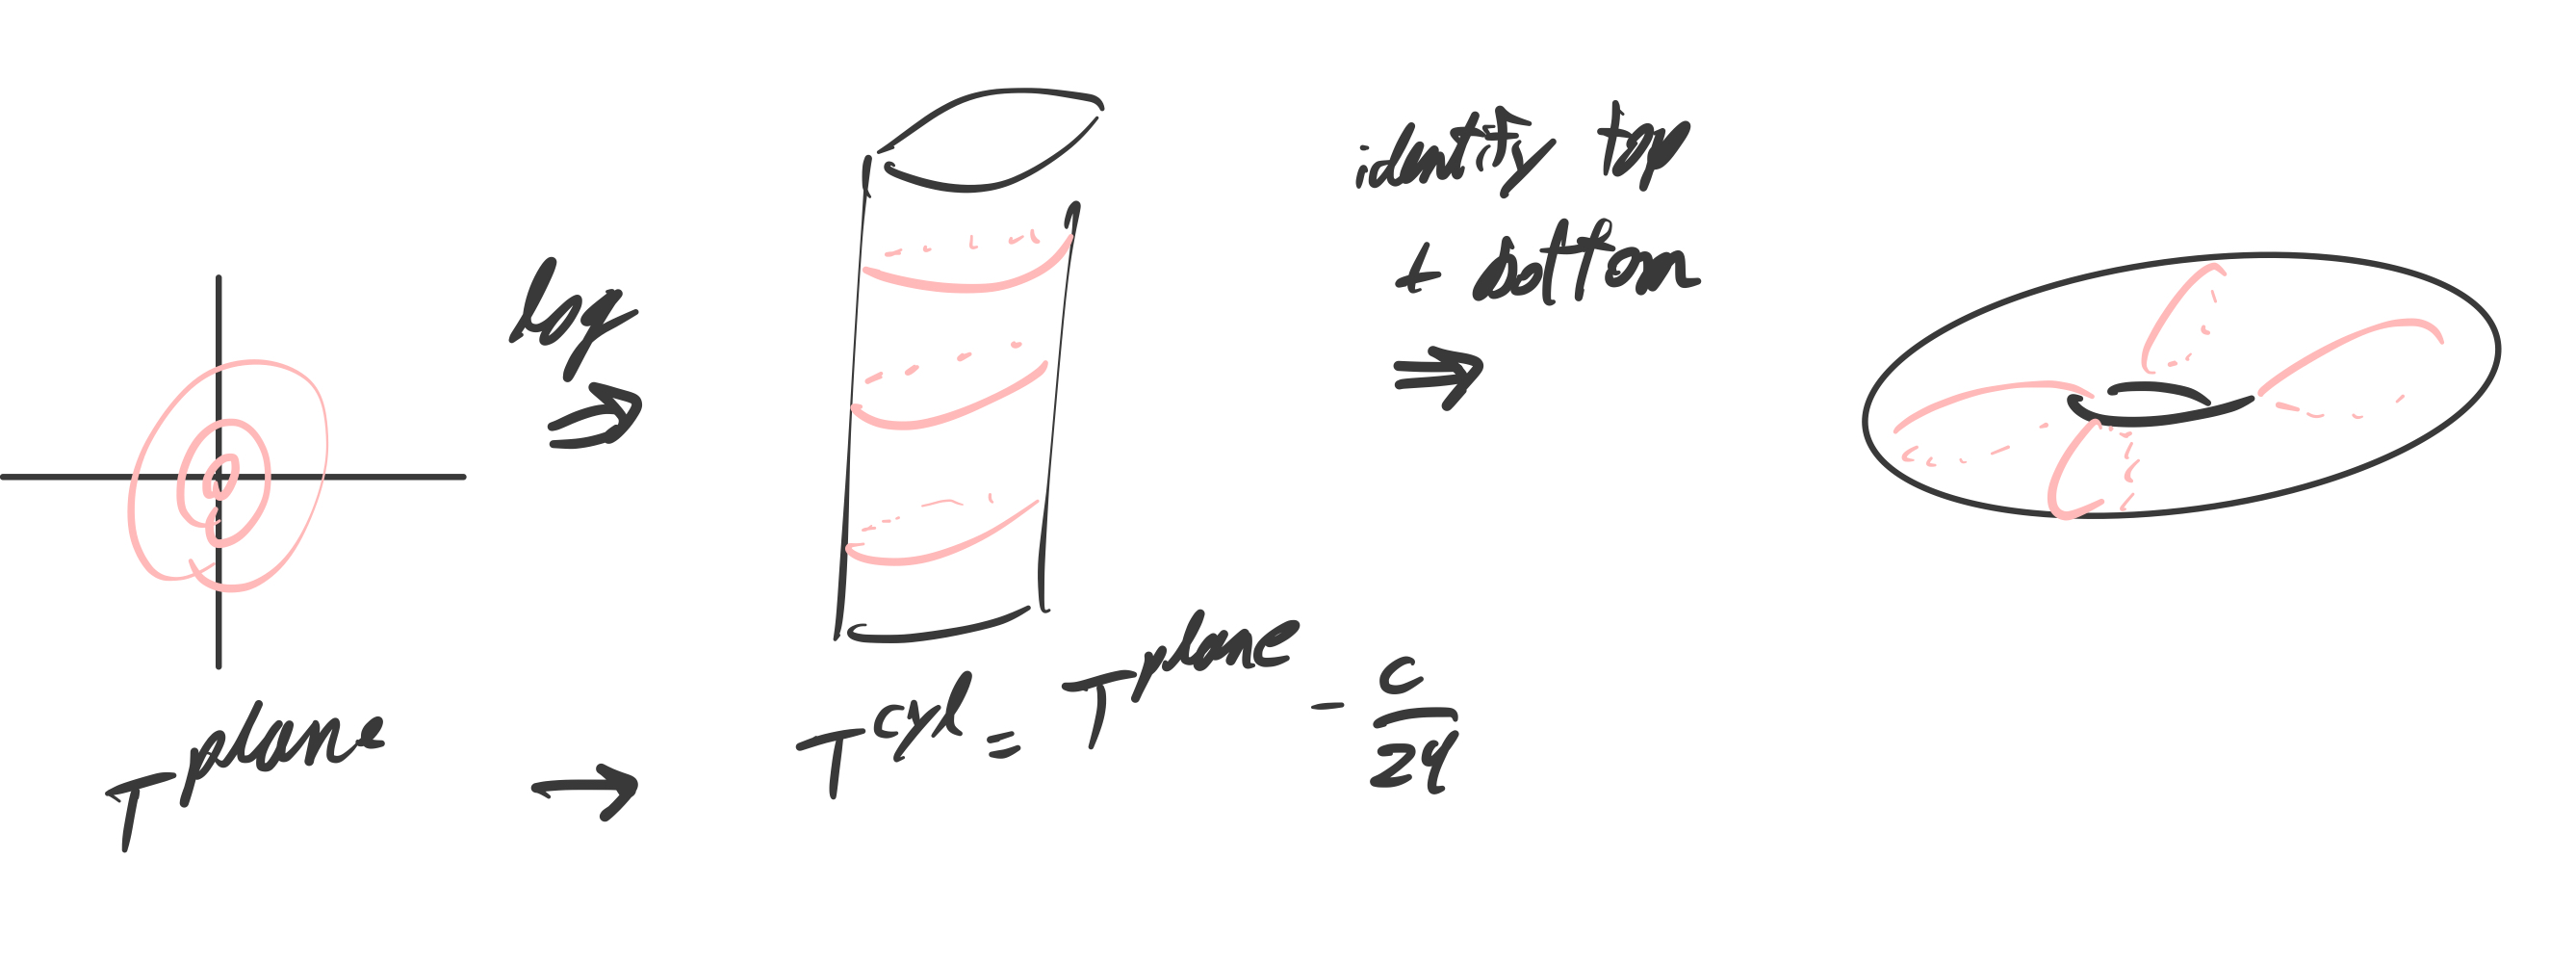 log
identify top
+ bottom
T^plane → T^cyl = T^plane - c/24